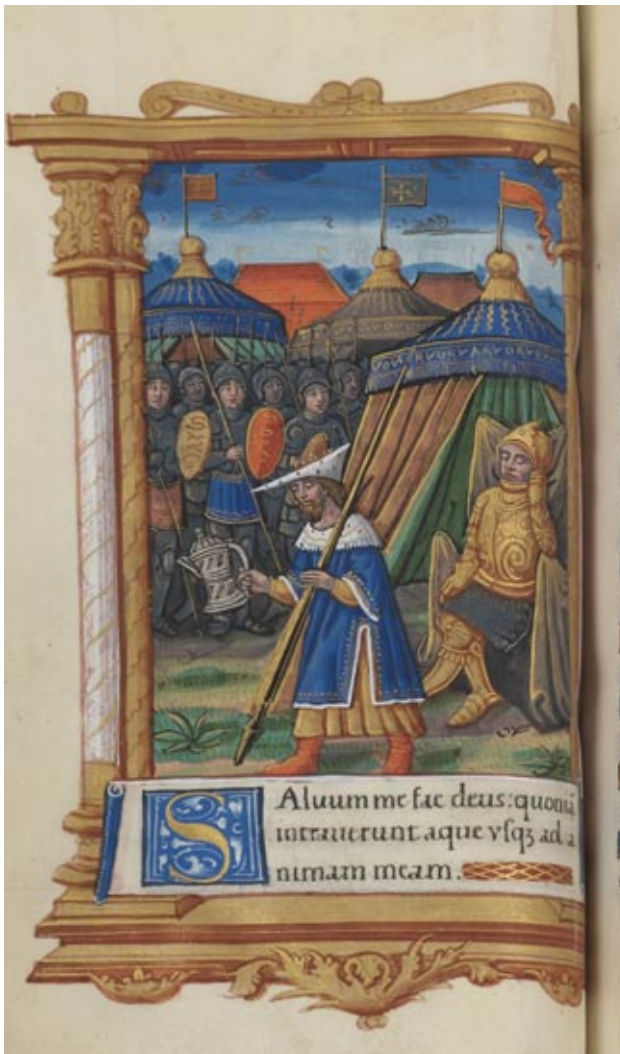 SAluum me fac deus: quoniā
intrauerunt aque vsqꝫ ad a
nimam meam.